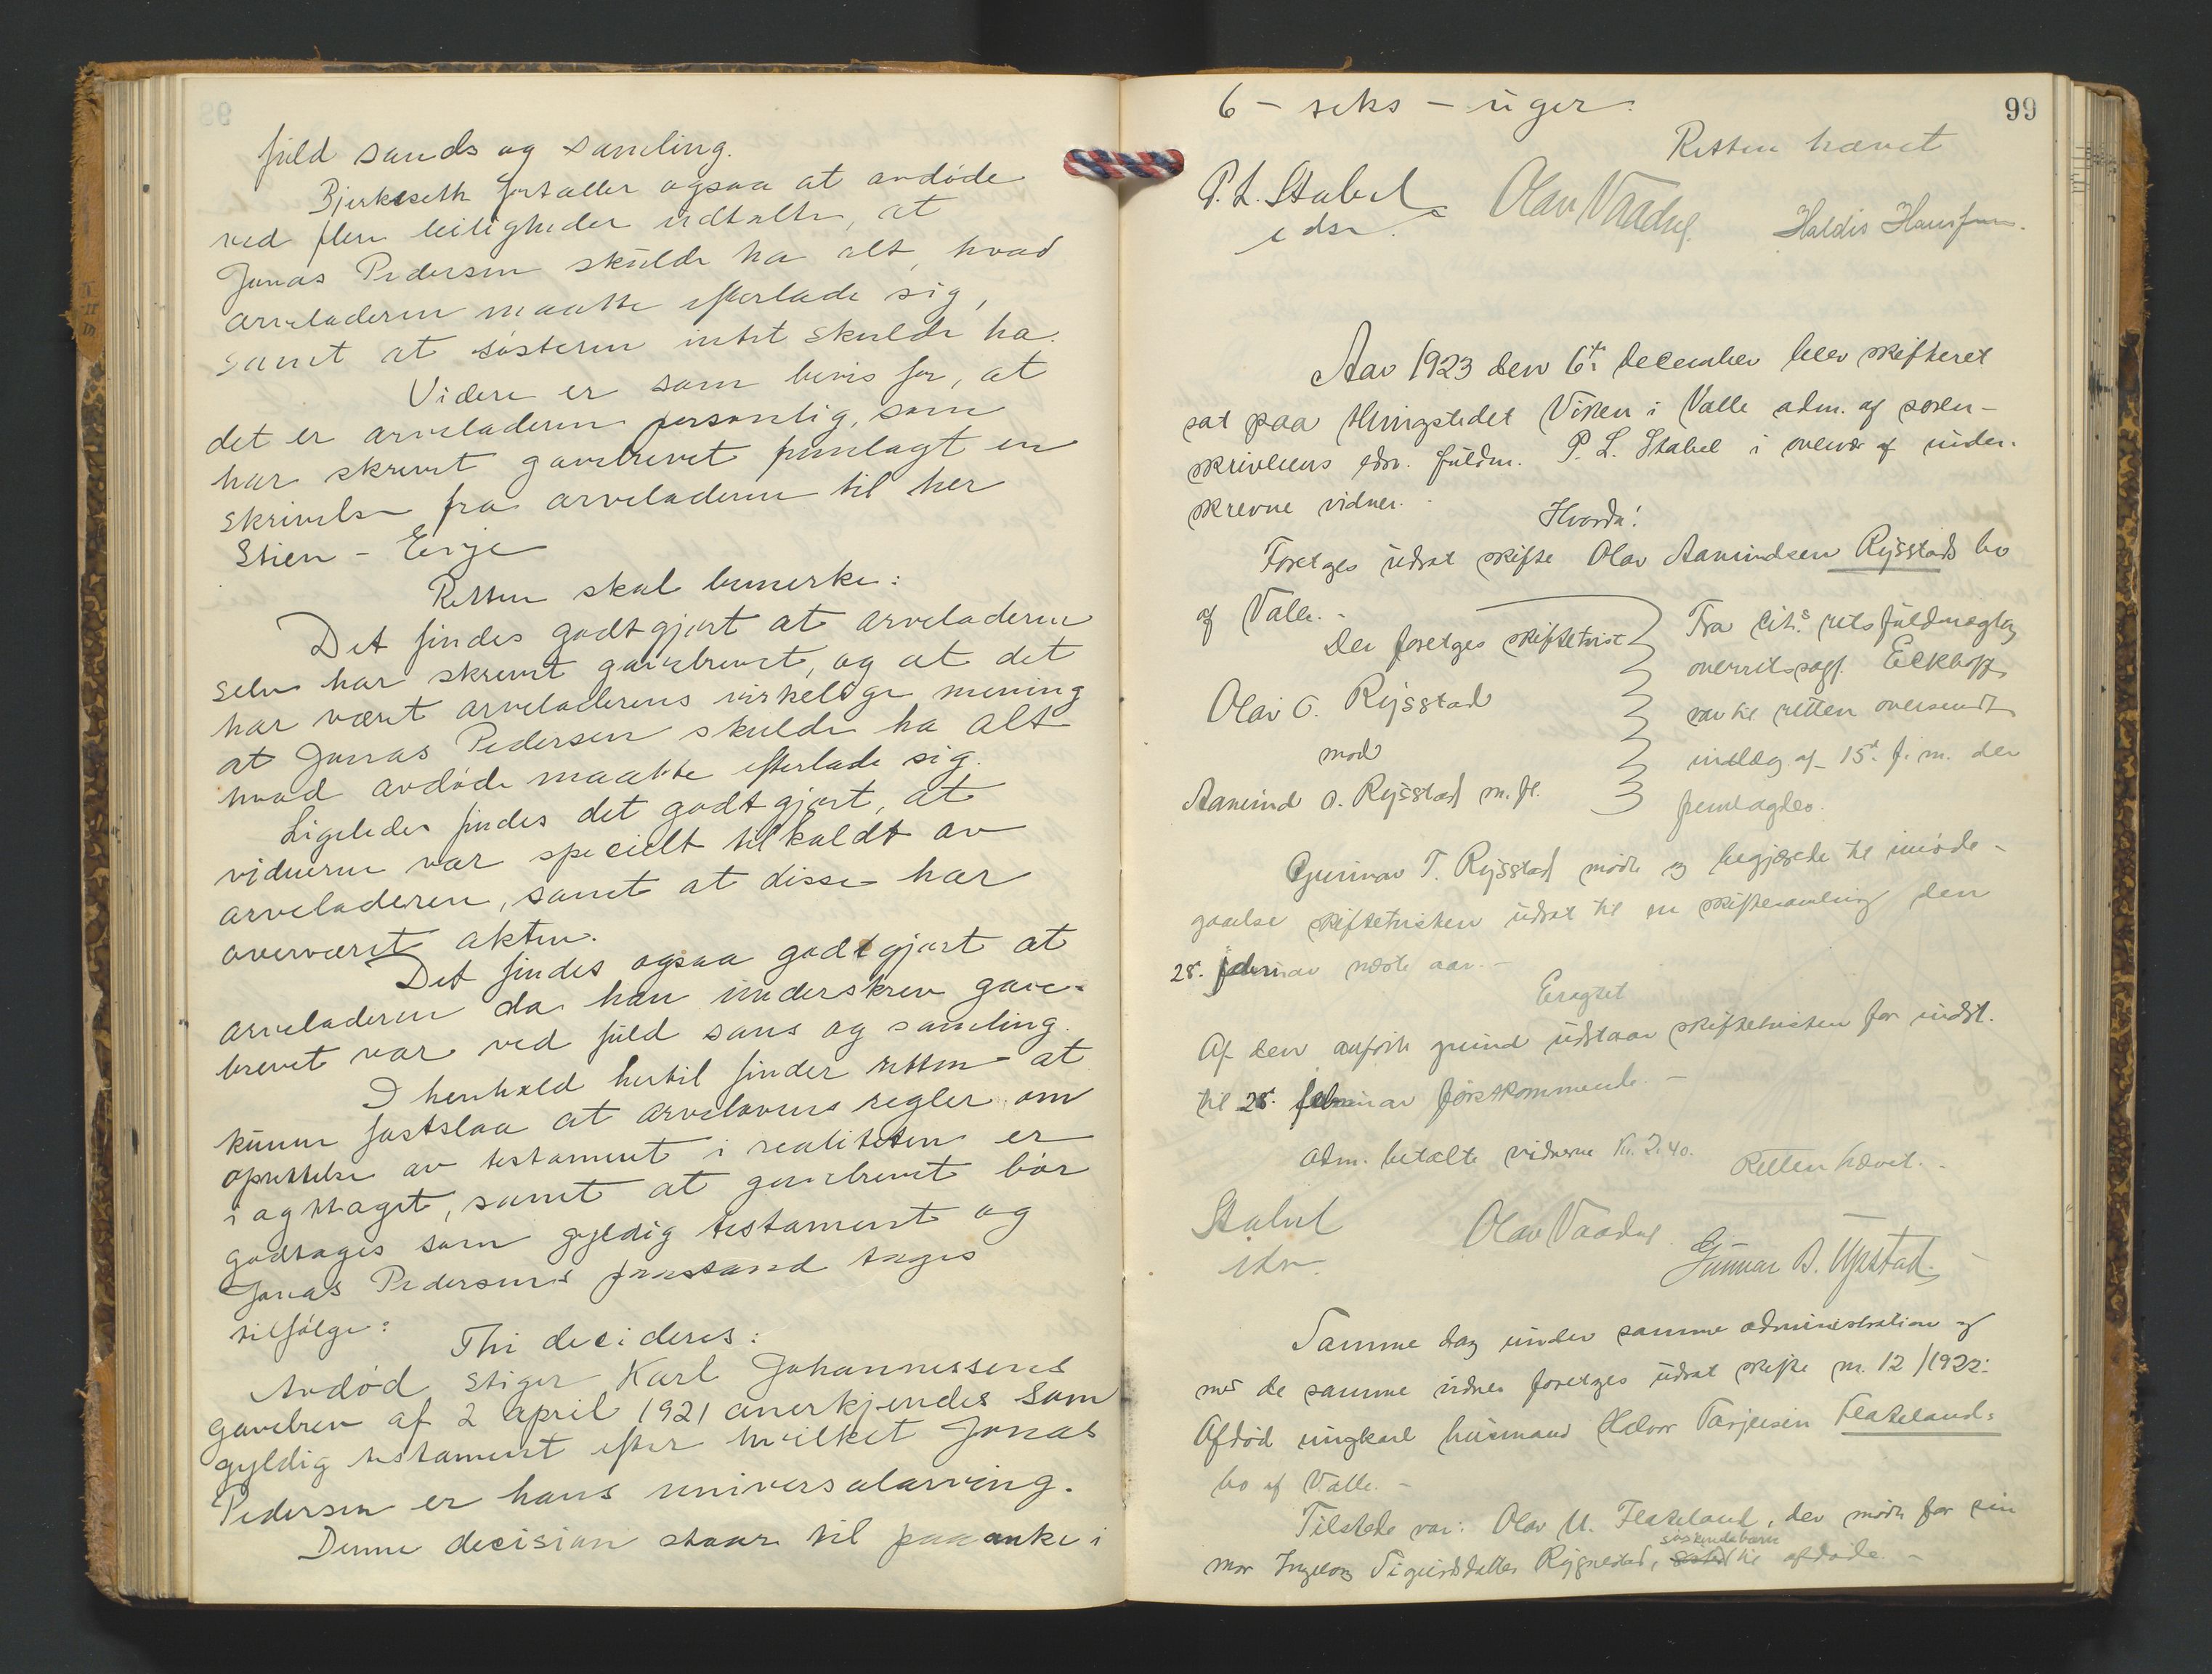 fuld sands og samling.
Bjerkeseth fortæller ogsaa at avdöde
ved flere leiligheder udtalte, at
Jonas Pedersen skulde ha alt, hvad
arveladeren maatte efterlade sig,
samt at søsteren intet skulde ha.
Videre er som bevis for, at
det er arveladeren personlig, som
har skrevet gavebrevet fremlagt en
skrivelse fra arveladeren til her
Stien - Evje
Retten skal bemerke:
Det findes godtgjort at arveladeren
selv har skrevet gavebrevet, og at det
har været arveladerens virkelige mening
at Jonas Pedersen skulde ha alt
hvad avdøde maatte efterlade sig.
Ligeledes findes det godtgjort, at
vidnerne var specielt tilkaldt av
arveladeren, samt at disse har
overværet akten.
Det findes ogsaa godtgjort at
arveladeren da han underskrev gave-
brevet var ved fuld sans og samling.
I henhold hertil finder retten at
kunne fastslaa at arvelovens regler om
oprettelse av testament i realiteten er
iagttaget, samt at gavebrevet bör
godtages som gyldig testament og
Jonas Pedersens paastand tages
tilfølge:
Thi decideres:
Avdød stiger Karl Johannessens
gavebrev af 2 april 1921 anerkjendes som
gyldig testament efter hvilket Jonas
Pedersen er hans universalarving.
Denne decision staar til paaanke i
99
6 - seks - uger.
Retten hævet
P. L. Stabel
edsv.
Olav Vaadng
Haldis Hansen.
Aar 1923 den 6te december blev skifteret
sat paa thingstedet Viken i Valle adm. af soren-
skriverens edsv. fuldm. P. L. Stabel i overvær af under-
skrevne vidner.
Hvorda!
Foretges udsat skifte Olav Aamundsen Rysstads bo
af Valle. -
Der foretges skiftetvist
Olav O. Rysstad
mod
Aamund O. Rysstad m. fl.
Fra cit.s retsfuldmægtig
overretssagf. Eckhoff
var til retten oversendt
indlæg af 15d. f. m. der
fremlagdes.
Gunnar T. Rysstad mødte og begjærede til imøde-
gaaelse skiftetvisten udsat til en skiftesamling den
28. februar næste aar. -
Eragtet
Af den anførte grund udstaar skiftetvisten for indst.
til 28. februar førstkommende. -
Adm. betalte vidnerne kr. 2.40.
Retten hævet. -
Stabel
edsv.
Olav Vaadng
Gunnar B. Uppstad.
Samme dag under samme administration og
med de samme vidner foretges udsat skifte nr. 12/1922:
Afdød ungkarl husmand Halvor Tarjeisen Flateland-
bo af Valle. -
Tilstede var: Olav U. Flateland, der mødte for sin
søskendebarn
mor Ingeborg Sigurdsdatter Rygnestad, til afdøde. -